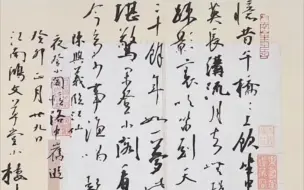 憶昔午橋橋上飲坐中
英長溝流月去無聲
疏影裏吹笛到天
二十餘年如一夢
堪驚閒登小閣看
今多少事漁唱
陳與義臨江仙
夜登小閣憶洛中舊遊
癸卯二月廿九日
江南鴻文草堂小樓